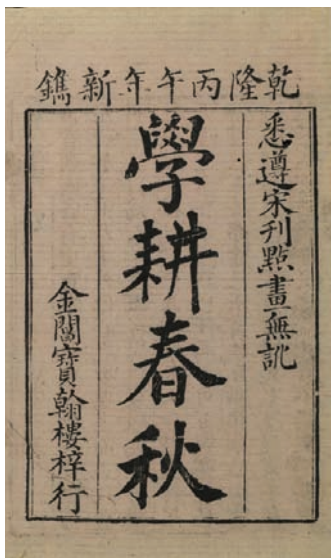 乾隆丙午年新鐫
悉遵宋刊點畫無訛
學耕春秋
金閶寶翰樓梓行